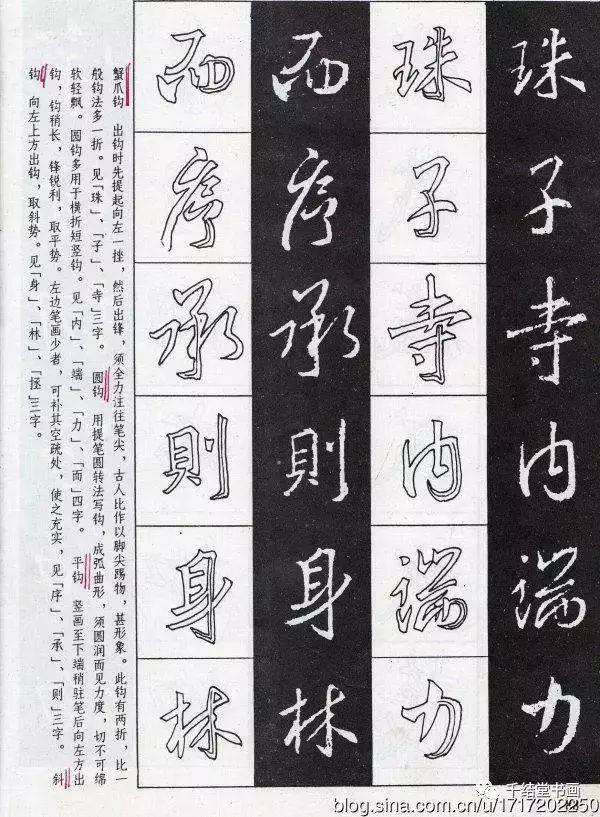 珠子寺内端力
珠子寺内端力
而序承則身林
而序承則身林
蟹爪钩　出钩时先提起向左一挫，然后出锋，须全力注往笔尖，古人比作以脚尖踢物，甚形象。此钩有两折，比一
般钩法多一折。见「珠」、「子」、「寺」三字。　圆钩　用提笔圆转法写钩，成弧曲形，须圆润而见力度，切不可绵
软轻飘。圆钩多用于横折短竖钩。见「内」、「端」、「力」、「而」四字。　平钩　竖画至下端稍驻笔后向左方出
钩，钩稍长，锋锐利，取平势。左边笔画少者，可补其空疏处，使之充实，见「序」、「承」、「则」三字。　斜
钩　向左上方出钩，取斜势。见「身」、「林」、「拯」三字。
千结堂书画
blog.sina.com.cn/u/1717202250